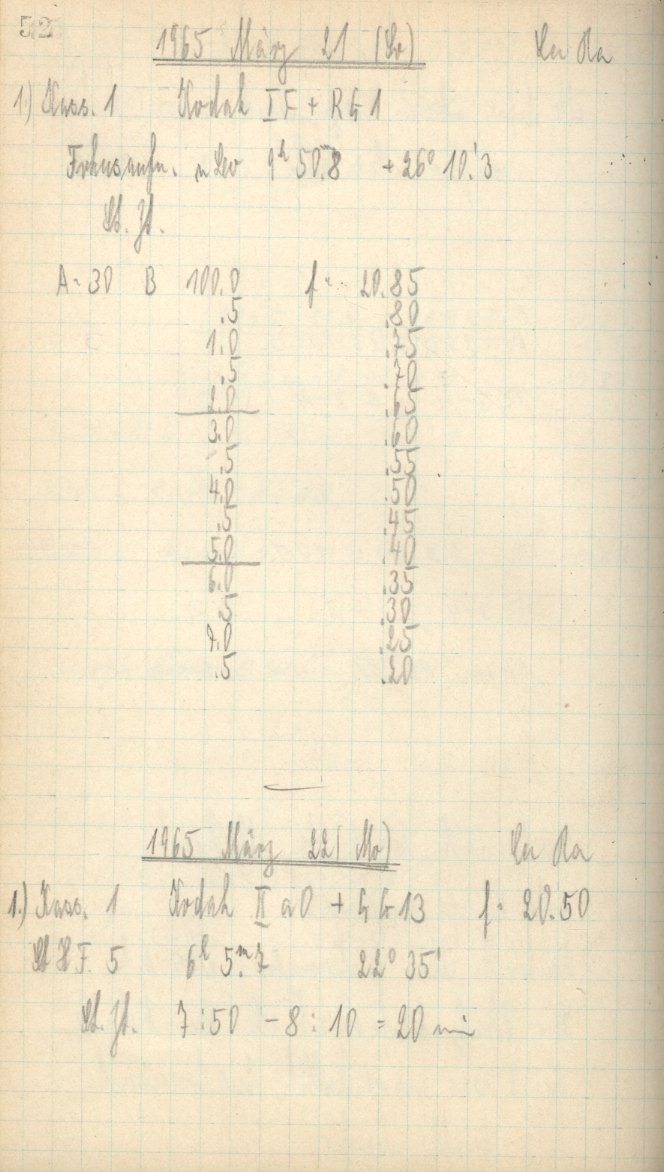 52
1965 März 21 (So) La Ra
1.) Kass. 1 Kodak I F + RG 1
Fokusaufn. μ Leo 9h 50.m8 + 26° 10.'3
St. Zt.
A = 30 B 100.0 f = 20.85
.5 .80
1.0 .75
.5 .70
2.0 .65
3.0 .60
.5 .55
4.0 .50
.5 .45
5.0 .40
6.0 .35
.5 .30
7.0 .25
.5 .20
1965 März 22 (Mo) La Ra
1.) Kass. 1 Kodak II a O + GG 13 f = 20.50
F. 5 6h 5.m7 22° 35'
St. Zt. 7:50 - 8:10 = 20 min